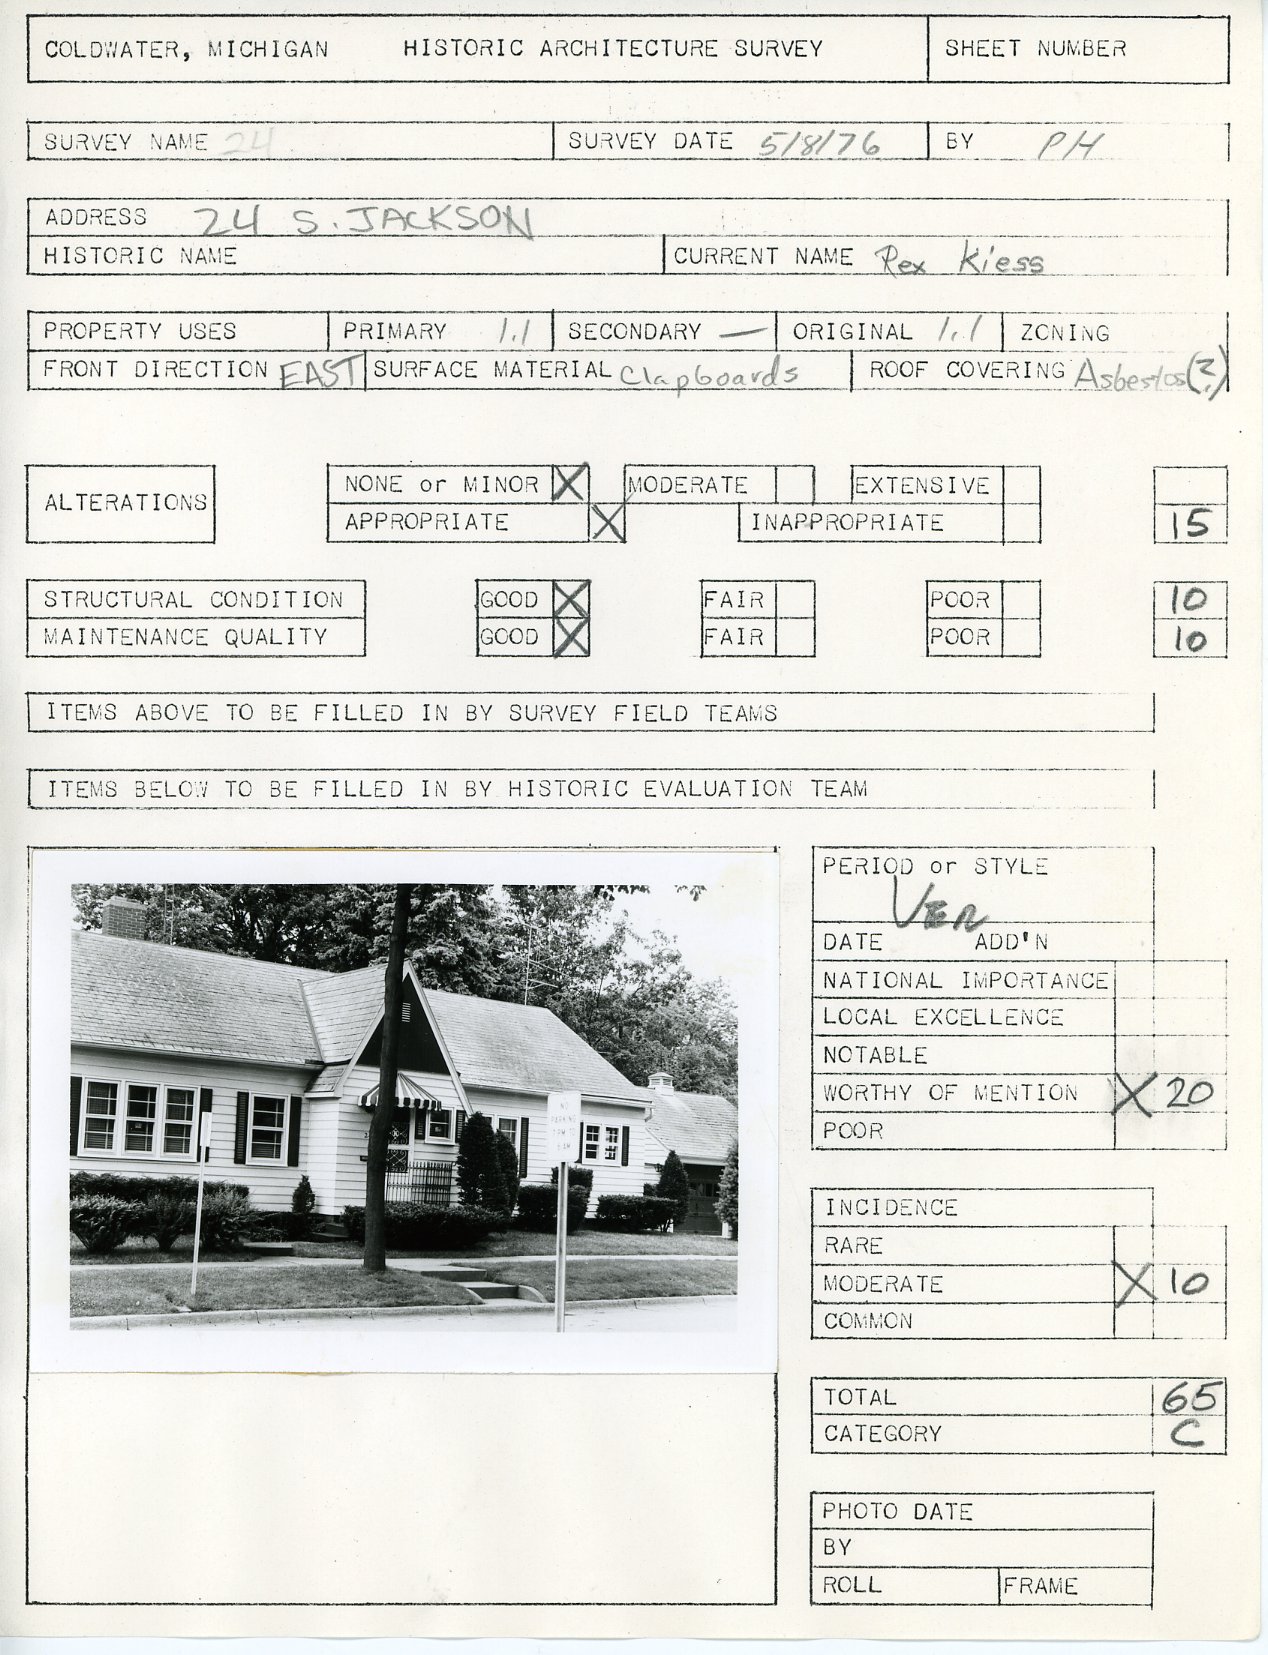 COLDWATER, MICHIGAN HISTORIC ARCHITECTURE SURVEY SHEET NUMBER
SURVEY NAME 24 SURVEY DATE 5/8/76 BY PH
ADDRESS 24 S. JACKSON
HISTORIC NAME CURRENT NAME Rex Kiess
PROPERTY USES PRIMARY 1.1 SECONDARY — ORIGINAL 1.1 ZONING
FRONT DIRECTION EAST SURFACE MATERIAL Clapboards ROOF COVERING Asbestos(?)
ALTERATIONS NONE or MINOR X MODERATE EXTENSIVE
APPROPRIATE X INAPPROPRIATE 15
STRUCTURAL CONDITION GOOD X FAIR POOR 10
MAINTENANCE QUALITY GOOD X FAIR POOR 10
ITEMS ABOVE TO BE FILLED IN BY SURVEY FIELD TEAMS
ITEMS BELOW TO BE FILLED IN BY HISTORIC EVALUATION TEAM
PERIOD or STYLE
VER
DATE ADD'N
NATIONAL IMPORTANCE
LOCAL EXCELLENCE
NOTABLE
WORTHY OF MENTION X 20
POOR
INCIDENCE
RARE
MODERATE X 10
COMMON
TOTAL 65
CATEGORY C
PHOTO DATE
BY
ROLL FRAME
NO
PARKING